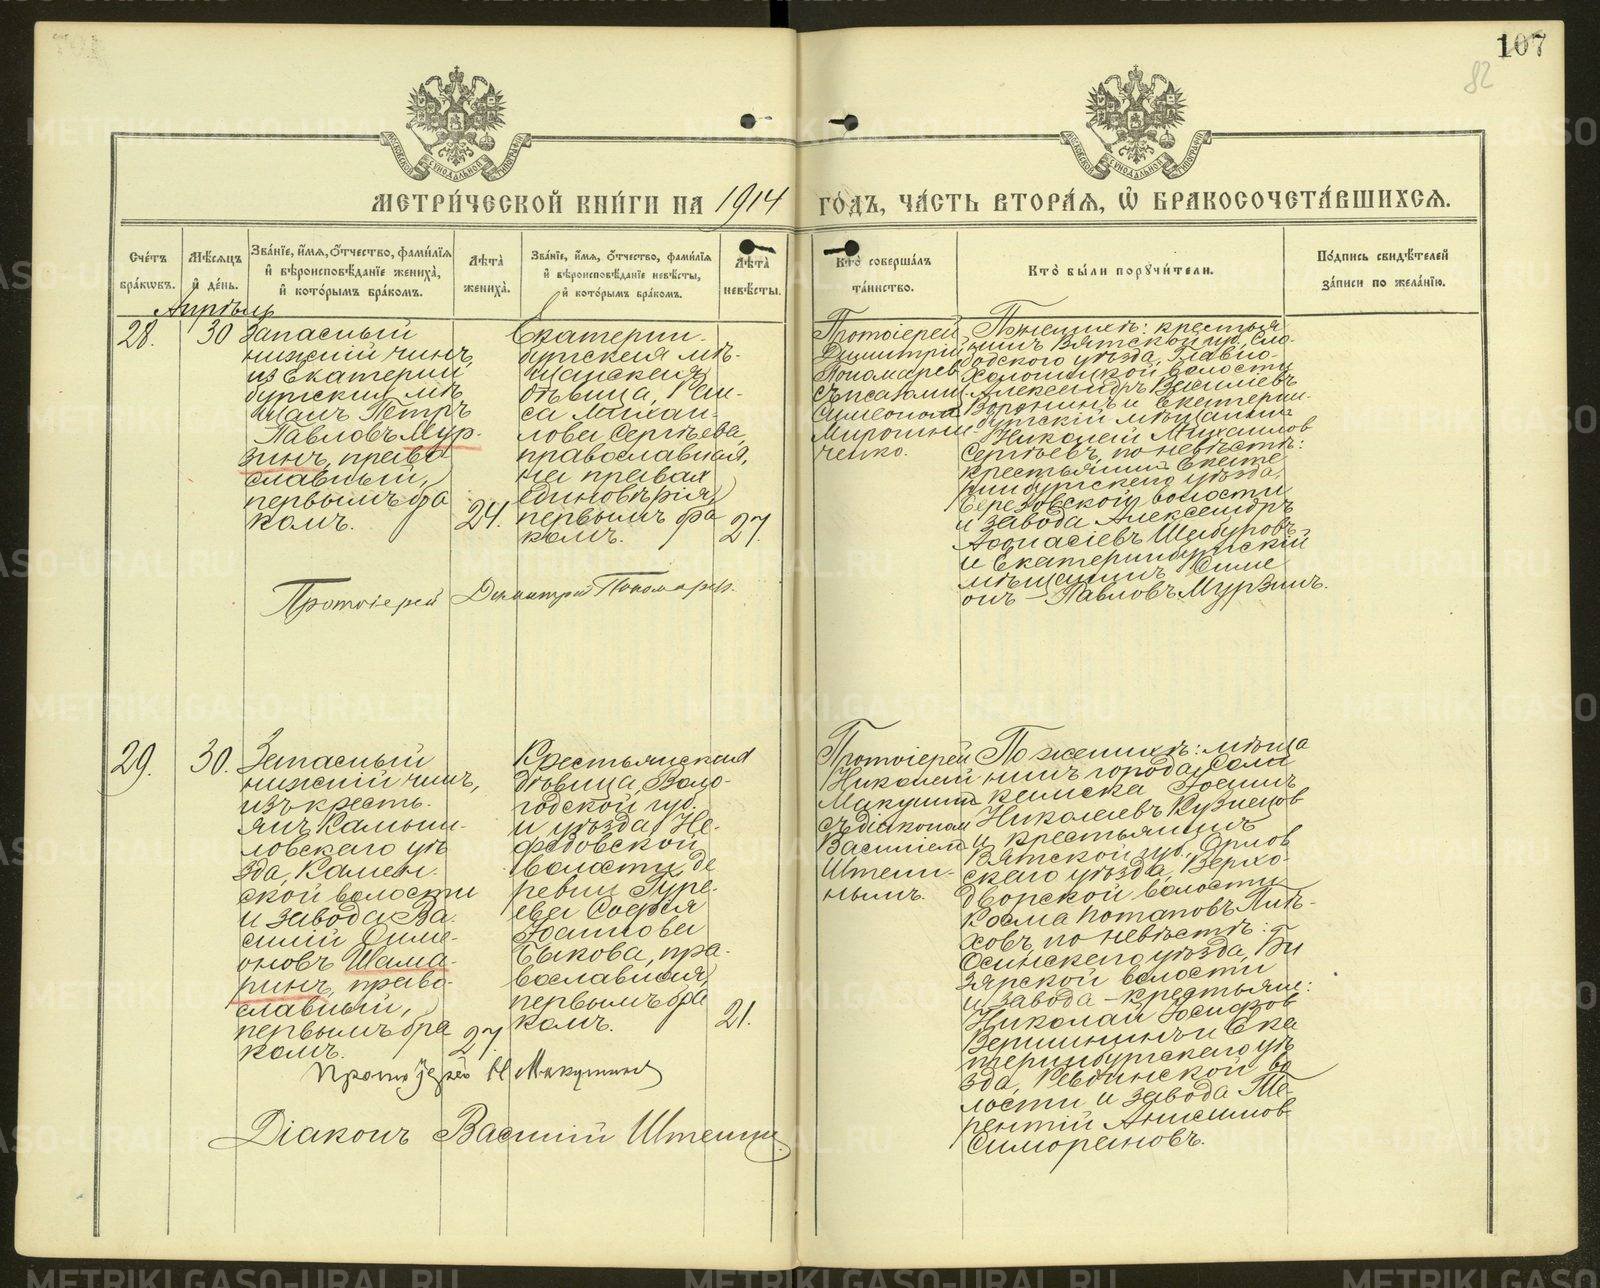 107
82
МЕТРИ́ЧЕСКОЙ КНИ́ГИ НА 1914 ГО́ДЪ, ЧА́СТЬ ВТОРА́Я, Ѿ БРАКОСОЧЕТА́ВШИХСЯ.
Сче́тъ бра́кѡвъ.
Мѣ́сяцъ и́ де́нь.
Зва́нїе, и́мя, ѻ́тчество, фами́лїя и́ вѣроисповѣ́данїе жениха̀, и́ кото́рымъ бра́комъ.
Лѣта̀ жениха̀.
Зва́нїе, и́мя, ѻ́тчество, фами́лїя и́ вѣроисповѣ́данїе невѣ́сты, и́ кото́рымъ бра́комъ.
Лѣта̀ невѣ́сты.
Кто̀ соверша́лъ та́инство.
Кто̀ бы́ли порꙋчи́тели.
По́дпись свидѣ́телей за́писи по жела́нїю.
Апрѣль
28.
30
Запасный
нижній чинъ
из Екатерин
бургских мѣ
щанъ Петръ
Павловъ Мур-
зинъ, право
славный,
первымъ бра
комъ.
24.
Екатерин-
бургская мѣ-
щанская
дѣвица, Раи-
са Михаи-
лова Сергѣева,
православная,
на правах
единовѣрія,
первымъ бра
комъ.
27.
Протоіерей
Димитрій
Пономарев
съ псаломщ
Симеоном
Мирошни
ченко.
По женихѣ: крестья
нинъ Вятской губ., Сло-
бодского уѣзда, Главно-
Холуницкой волости
Александръ Васильевъ
Воронинъ и Екатерин-
бургскій мѣщанинъ
Николай Михаилов
Сергѣевъ, по невѣстѣ:
крестьянинъ Екате
ринбургскаго уѣзда,
Березовской волости
и завода Александръ
Аѳанасіевъ Шабуровъ
и Екатеринбургскій
мѣщанинъ Симе
онъ Павловъ Мурзинъ.
Протоіерей Димитрій Пономарев.
29.
30.
Запасный
нижній чинъ,
изъ кресть-
янъ Камыш-
ловскаго уѣ
зда, Камен-
ской волости
и завода Ва-
силій Симе-
оновъ Шама-
ринъ, право-
славный,
первымъ бра
комъ.
27.
Крестьянская
дѣвица, Воло-
годской губ.
и уѣзда, Не-
федовской
волости, де
ревни Гуре-
ева София
Іоаннова
Быкова, пра-
вославная,
первымъ бра
комъ.
21.
Протоіерей
Николай
Макушин
съ діаконом
Василіем
Штен-
нымъ.
По женихѣ: мѣща
нинъ города Соли
камска Іоаннъ
Николаевъ Кузнецов
и крестьянинъ
Вятской губ., Орлов
скаго уѣзда, Верхо-
дворской волости
Косма Потаповъ Пле-
ховъ, по невѣстѣ:
Осинскаго уѣзда, Би
зярской волости
и завода - крестьяне:
Николай Іосифов
Вершининъ и Ека
теринбургскаго уѣ
зда, Ревдинской во
лости и завода Те-
рентій Анисимов
Симорановъ.
Протоіерей Н Макушинъ
Діаконъ Василій Штенни